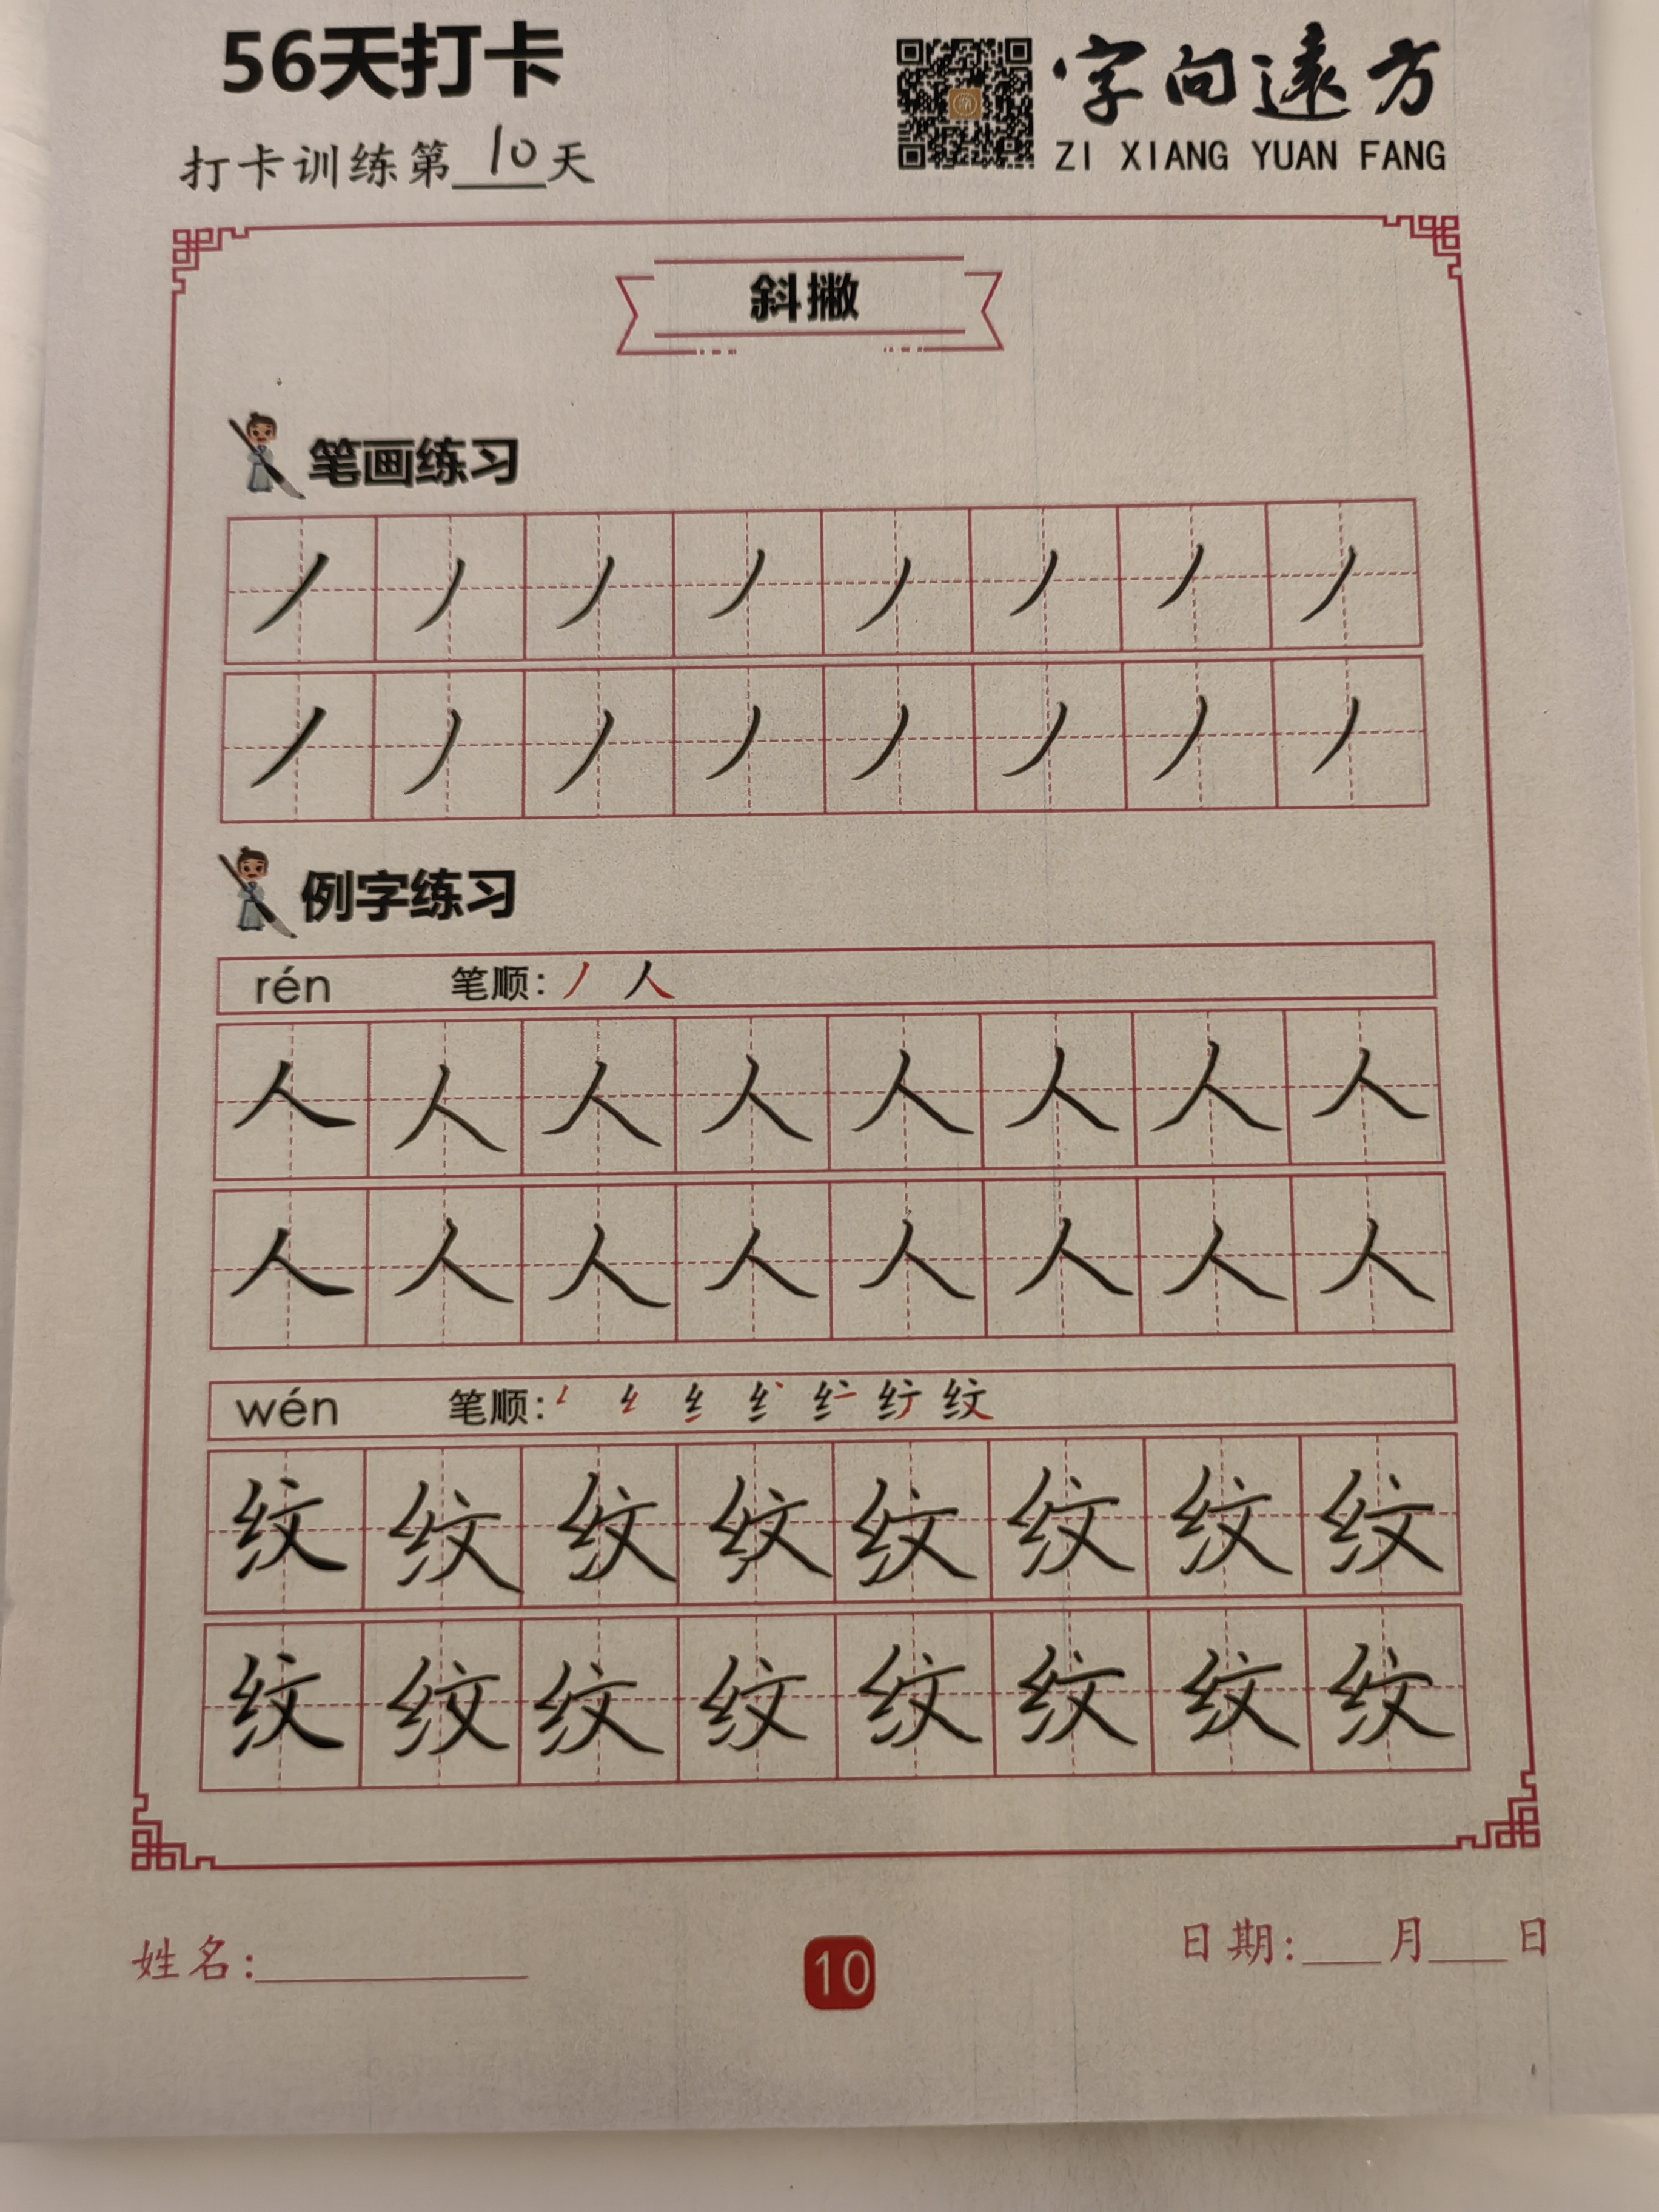 56天打卡
字向遠方
打卡训练第10天
ZI XIANG YUAN FANG
斜撇
笔画练习
丿丿丿丿丿丿丿丿
丿丿丿丿丿丿丿丿
例字练习
rén 笔顺:丿 人
人人人人人人人人
人人人人人人人人
wén 笔顺: 纹
纹纹纹纹纹纹纹纹
纹纹纹纹纹纹纹纹
姓名:
10
日期: 月 日